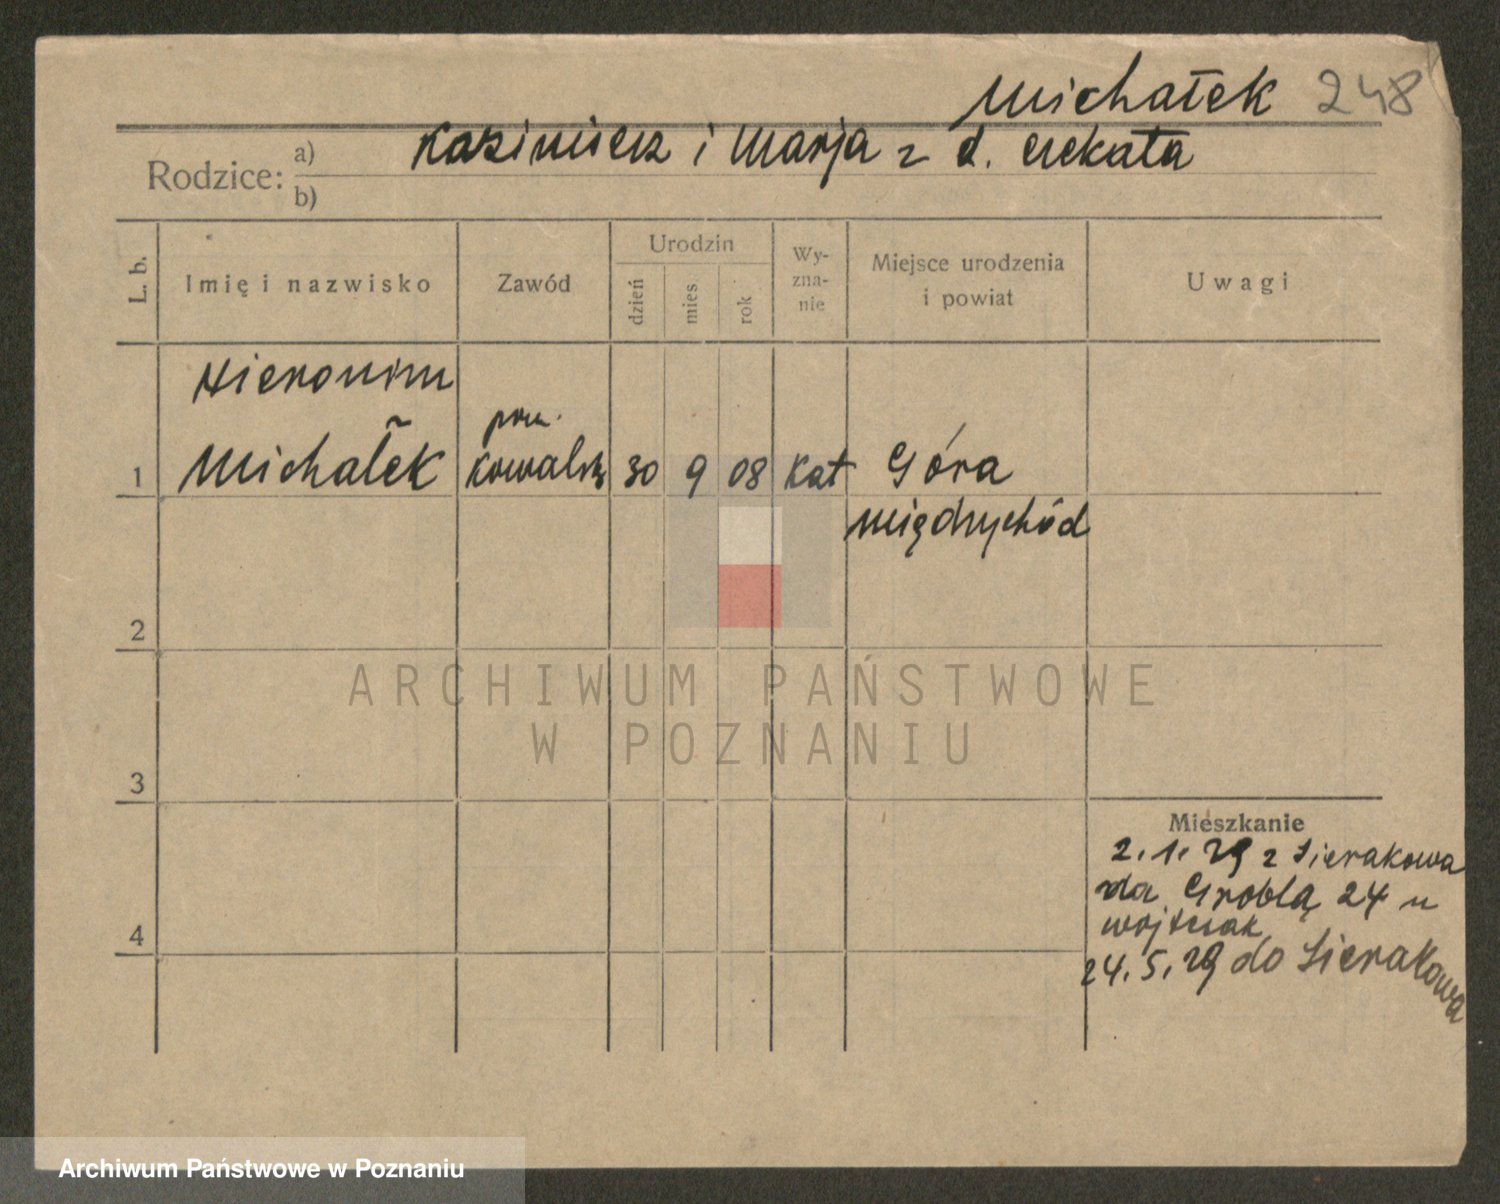 Michałek 248
Kazimierz i Marja z d. Czekała
Rodzice: a)
b)
L. b.
Imię i nazwisko
Zawód
Urodzin
dzień
mies.
rok
Wy-
zna-
nie
Miejsce urodzenia
i powiat
Uwagi
Hieronim
pom.
1 Michałek kowalski 30 9 08 kat Góra
Międzychód
2
ARCHIWUM PAŃSTWOWE
W POZNANIU
3
Mieszkanie
2.1.29 z Sierakowa
na Groblą 24 u
4
24.5.29 do Sierakowa
Archiwum Państwowe w Poznaniu